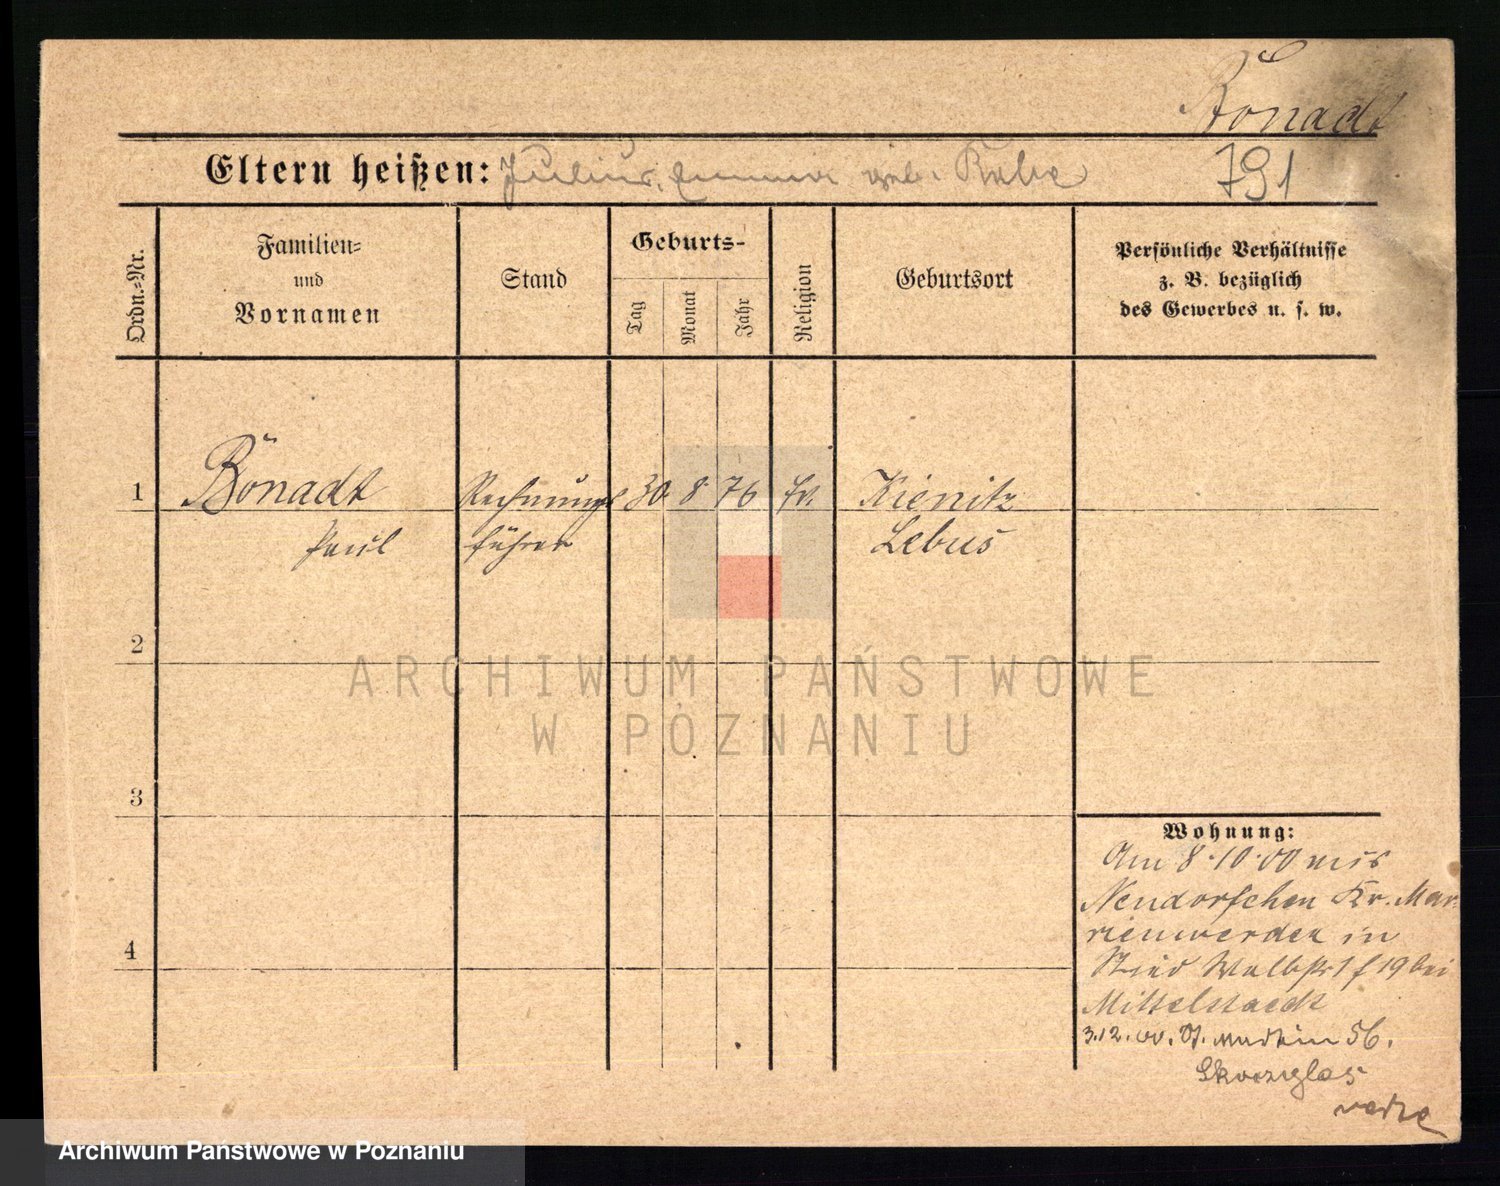 Bönadt
Eltern heißen: Julius, Emma geb. Rabe 791
Ordn.-Nr.
Familien-
und
Vornamen
Stand
Geburts-
Tag
Monat
Jahr
Religion
Geburtsort
Persönliche Verhältnisse
z. B. bezüglich
des Gewerbes u. s. w.
1 Bönadt Rechnungs 30. 8. 76 Kienitz
Paul führer Lebus
2
3
4
Wohnung:
Am 8.10.00 aus
Neudörfchen Kr. Mar-
rienwerder in
19 bei
Mittelstaedt
3.12. 00. St. Martin 56.
ARCHIWUM PAŃSTWOWE
W POZNANIU
Archiwum Państwowe w Poznaniu